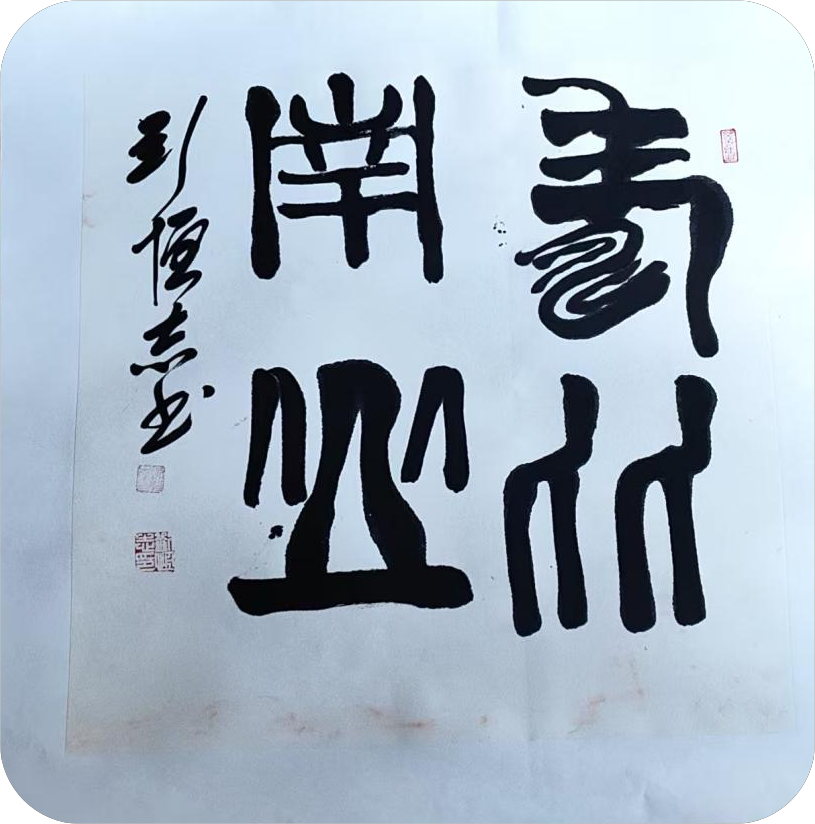 壽比
南山
刘恒志书